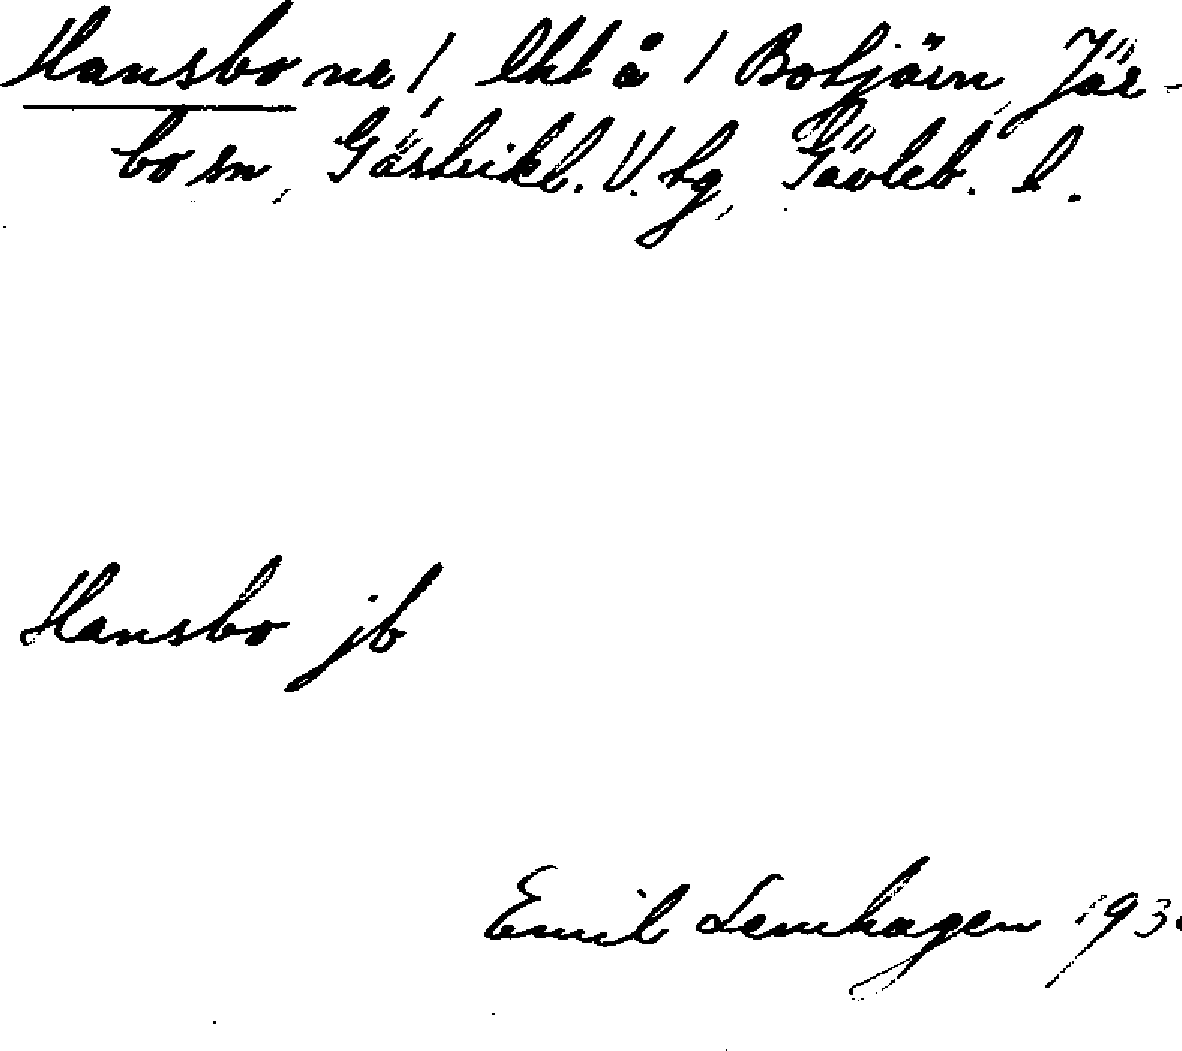 Hansbo nr 1, lht å 1 Botjärn, Jär-
bo sn, Gästrikl. V. tg, Gävleb. l.
Hansbo jb
Emil Lemhagen 193